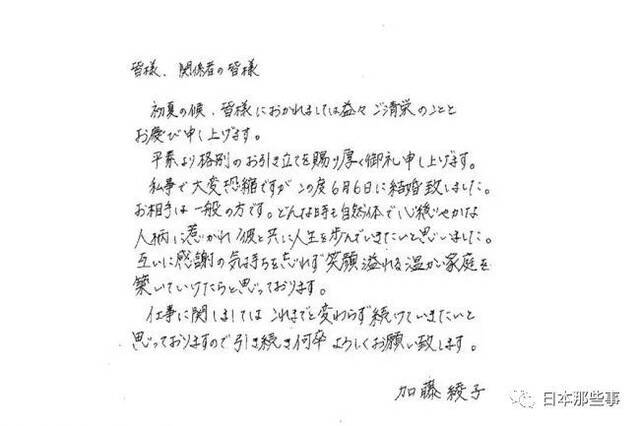 皆様、関係者の皆様
初夏の候、皆様におかれましては益々ご清栄のことと
お慶び申し上げます。
平素より格別のお引き立てを賜り厚く御礼申し上げます。
私事で大変恐縮ですがこの度6月6日に結婚致しました。
お相手は一般の方です。どんな時も自然体で心穏やかな
人柄に惹かれ彼と共に人生を歩んでいきたいと思いました。
互いに感謝の気持ちを忘れず笑顔溢れる温かい家庭を
築いていけたらと思っております。
仕事に関しましてはこれまでと変わらず続けていきたいと
思っておりますので引き続き何卒よろしくお願い致します。
加藤綾子
日本那些事